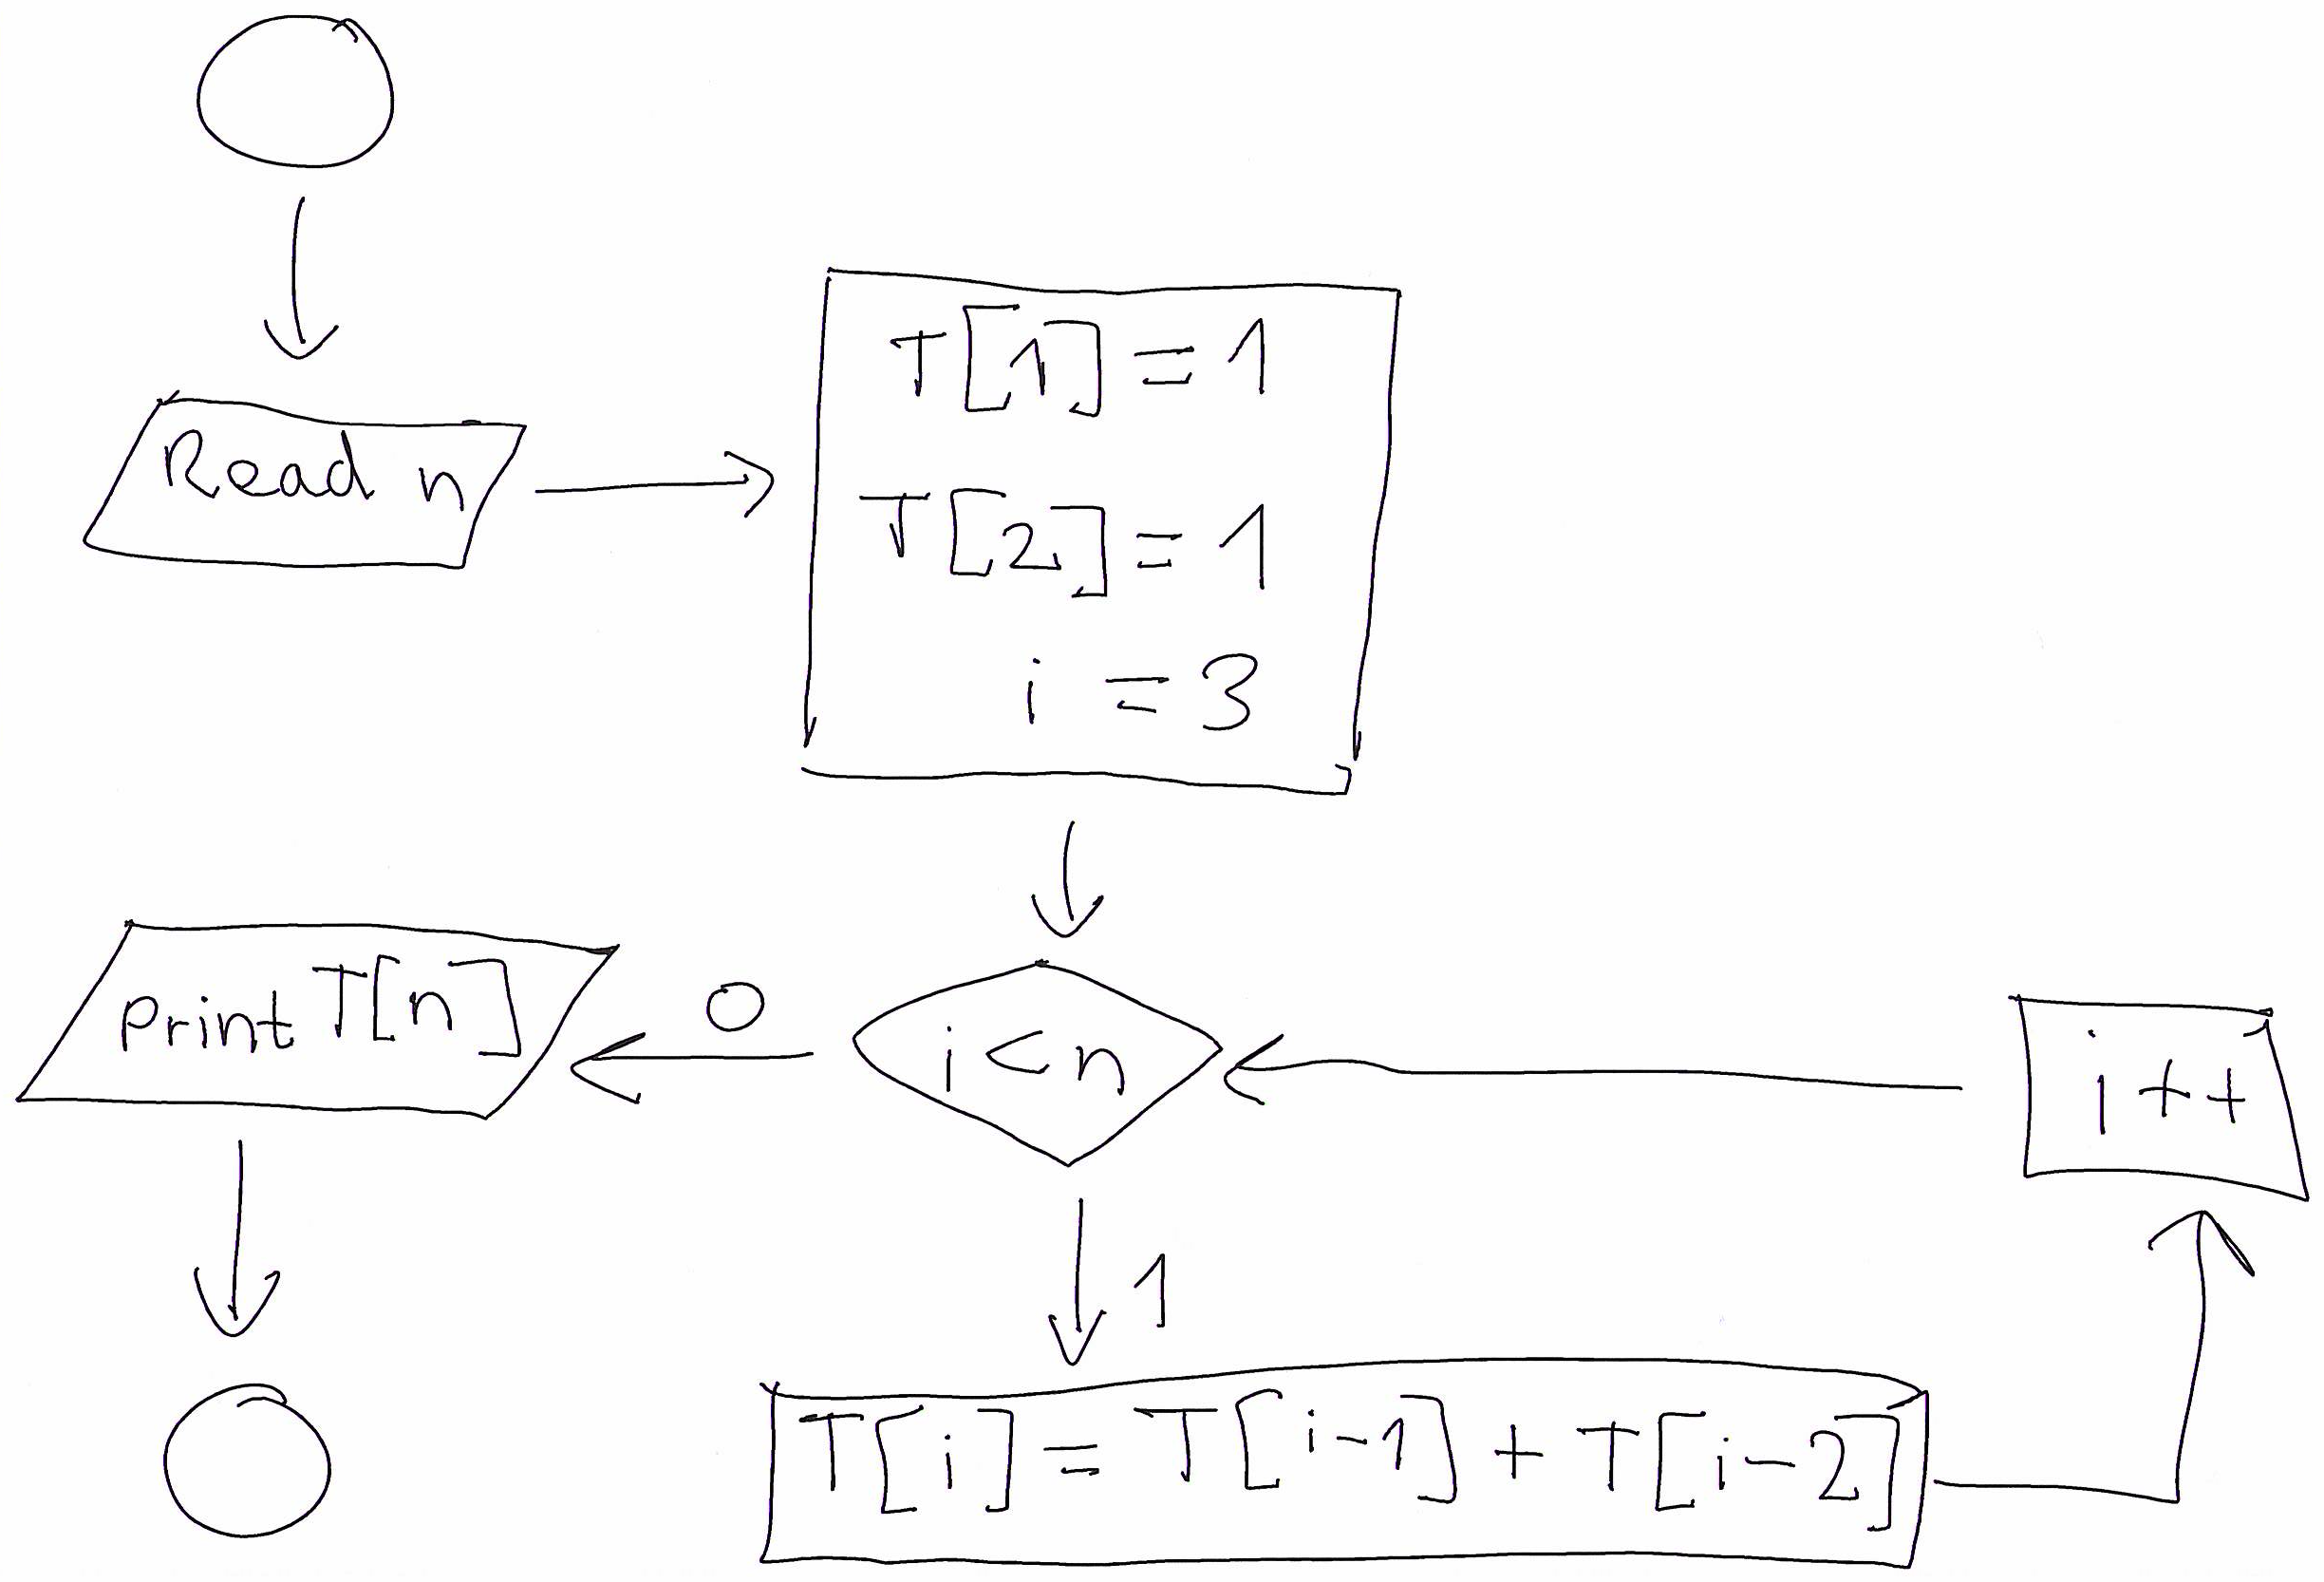 Read n
T[1] = 1
T[2] = 1
i = 3
i < n
0
print T[n]
1
T[i] = T[i-1] + T[i-2]
i++